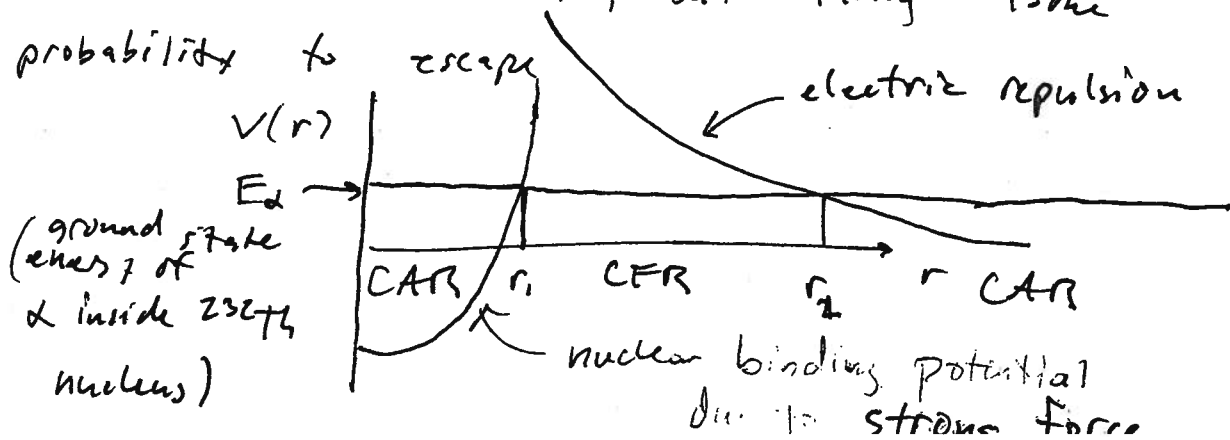 probability to escape
electric repulsion
V(r)
Eα →
(ground state
energy of
α inside 232Th
nucleus)
CAR r₁ CFR r₂ r CAR
nuclear binding potential
due to strong force